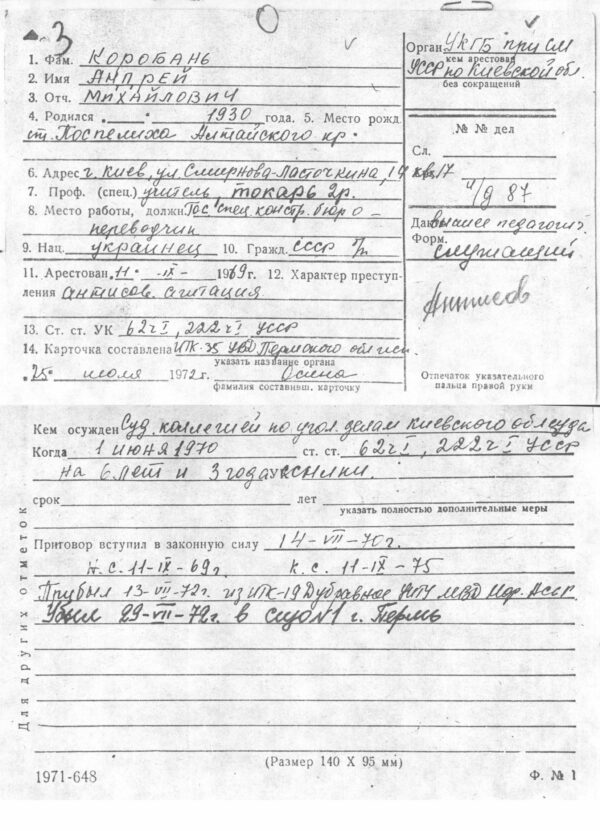 3
1. Фам. КОРОБАНЬ
2. Имя АНДРЕЙ
3. Отч. МИХАЙЛОВИЧ
4. Родился 1930 года. 5. Место рожд.
ст. Поспелиха Алтайского кр.
6. Адрес г. Киев, ул. Смирнова-Ласточкина, 19 кв. 17
7. Проф. (спец.) учитель, токарь 2р.
8. Место работы, должн. Гос. спец. констр. бюро –
переводчик
9. Нац. украинец 10. Гражд. СССР
11. Арестован „11“ -IX- 1969г. 12. Характер преступ-
ления антисов. агитация
13. Ст. ст. УК 62 ч I, 222 ч I УССР
14. Карточка составлена ИТК-35 УВД Пермского обл.исп.
указать название органа
„25“ июля 1972 г. Осина
фамилия составивш. карточку
Орган УКГБ при СМ
кем арестован
УССР по Киевской обл.
без сокращений
№ № дел
Сл.
87
высшее педагогич.
Форм.
служащий
Отпечаток указательного
пальца правой руки
Кем осужден Суд. коллегией по угол. делам Киевского облсуда
Когда 1 июня 1970 ст. ст. 62 ч I, 222 ч I УССР
на 6 лет и 3 года ссылки.
срок лет
указать полностью дополнительные меры
Приговор вступил в законную силу 14-VII-70г.
н.с. 11-IX-69г. к.с. 11-IX-75
Прибыл 13-VII-72г. из ИТК-19 Дубравное ИТУ МВД Мор. АССР
Убыл 29-VII-72г. в сизо №1 г. Пермь
Для других отметок
(Размер 140 X 95 мм)
1971-648
Ф. № 1